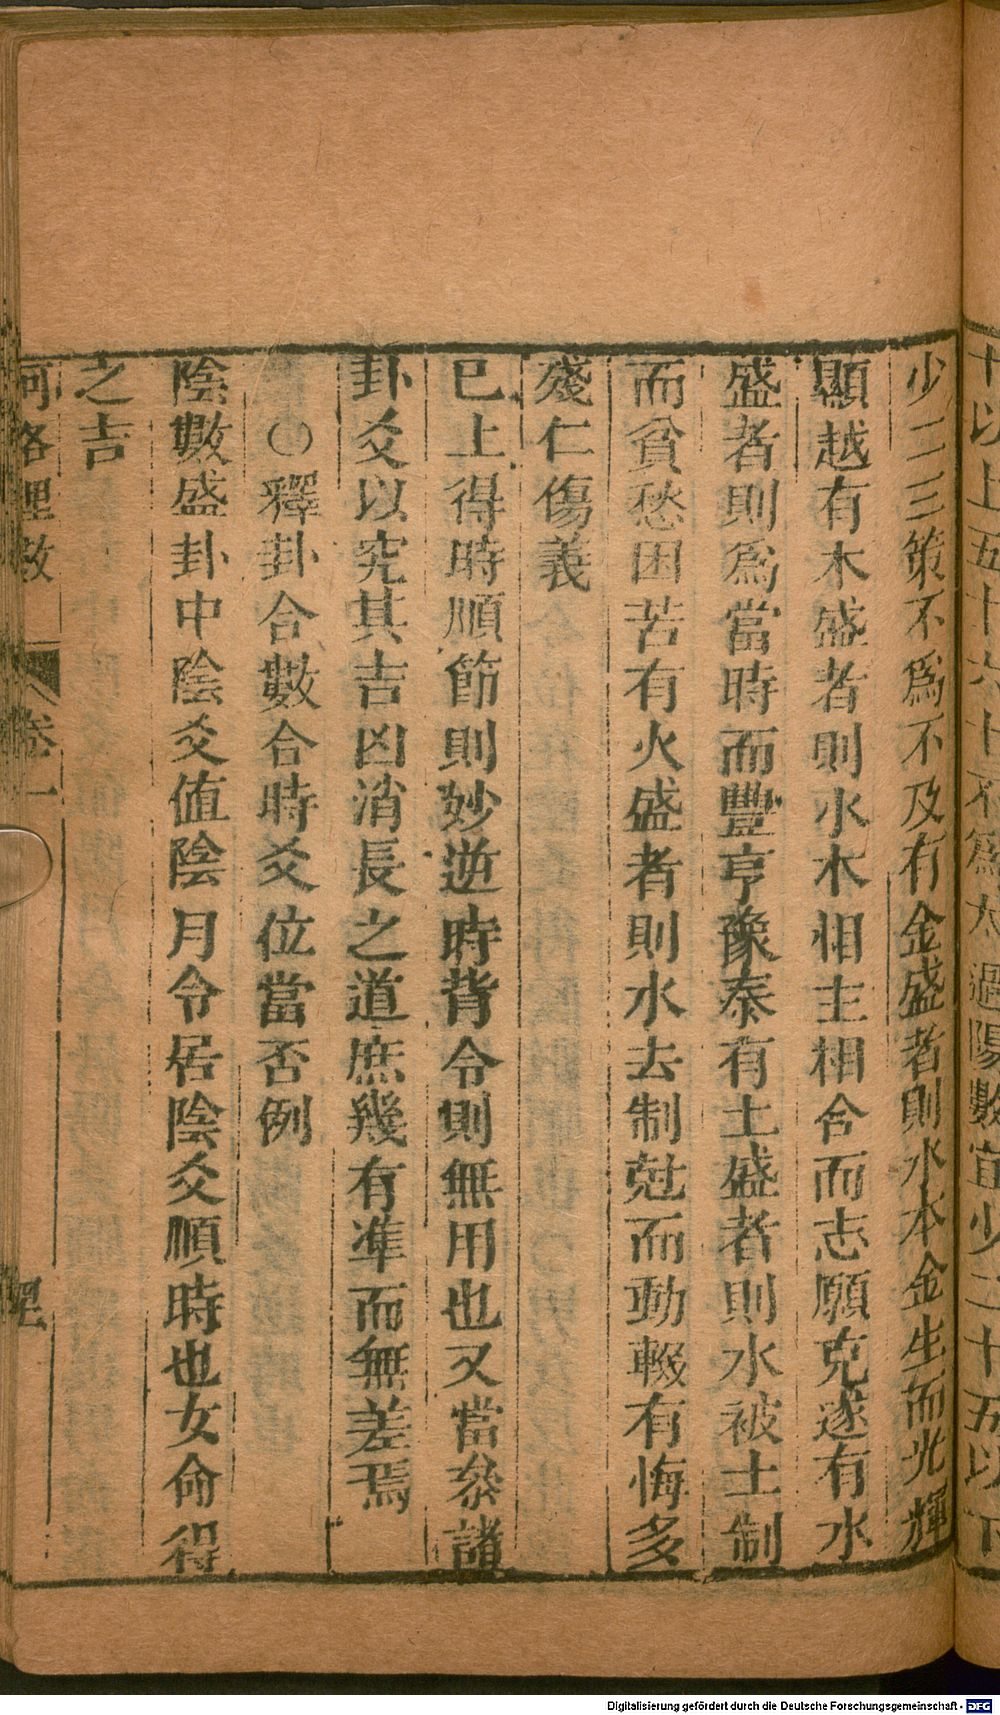 十以上五十六十不爲太過陽數宜少二十五以下
少二三策不爲不及有金盛者則水本金生而光輝
顯越有木盛者則水木相主相合而志願克遂有水
盛者則爲當時而豐亨豫泰有土盛者則水被土制
而貧愁困苦有火盛者則水去制尅而動輟有悔多
殘仁傷義
已上得時順節則妙逆時背令則無用也又當叅諸
卦爻以究其吉凶消長之道庶幾有準而無差焉
〇釋卦合數合時爻位當否例
陰數盛卦中陰爻值陰月令居陰爻順時也女命得
之吉
河洛理數 卷一
Digitalisierung gefördert durch die Deutsche Forschungsgemeinschaft - DFG